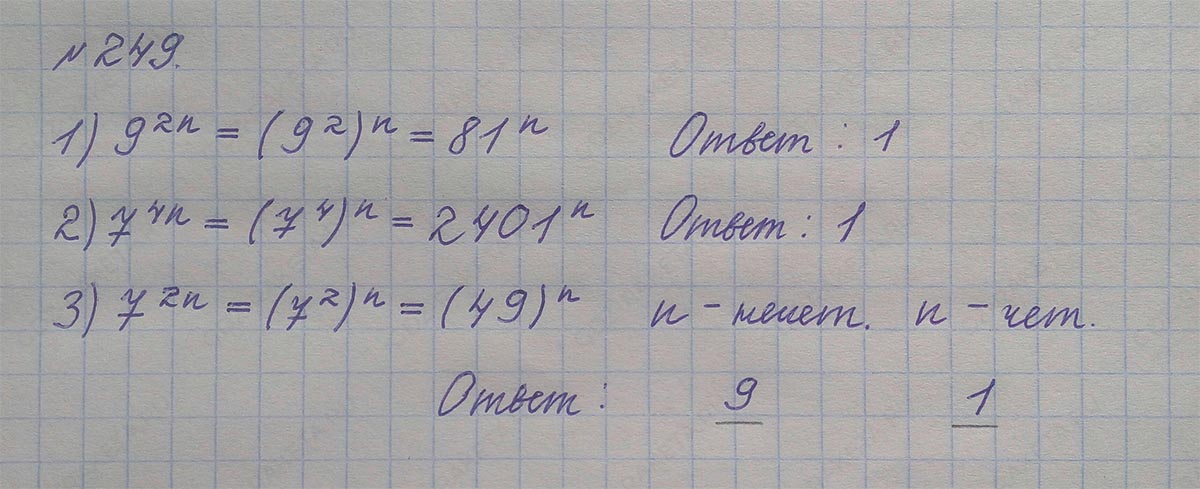 №249.
1) 9²ⁿ = (9²)ⁿ = 81ⁿ Ответ: 1
2) 7⁴ⁿ = (7⁴)ⁿ = 2401ⁿ Ответ: 1
3) 7²ⁿ = (7²)ⁿ = (49)ⁿ n - нечет. n - чет.
Ответ: 9 1